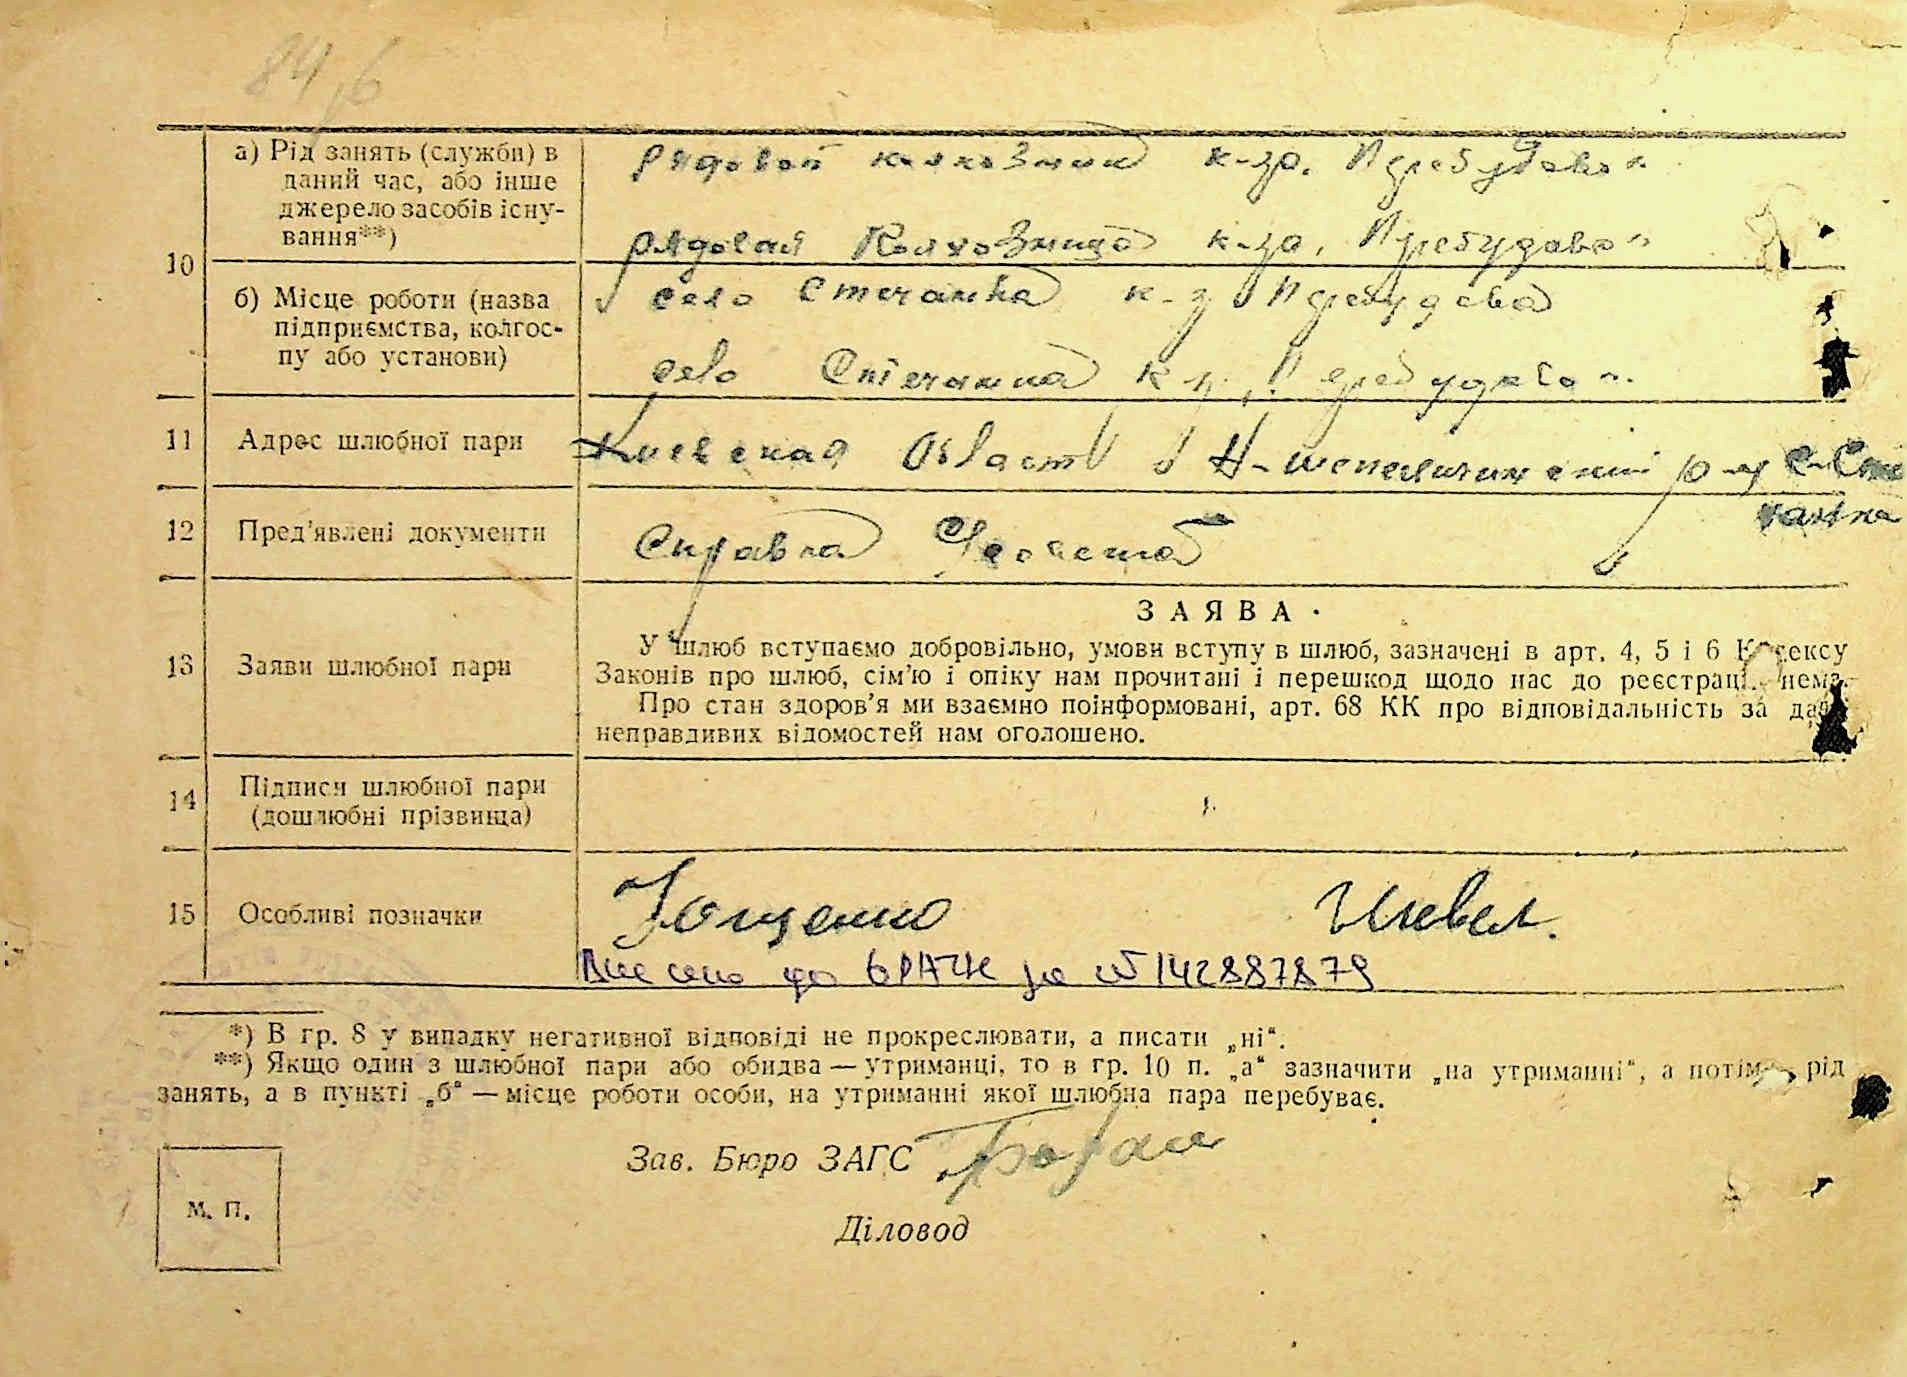 84
а) Рід занять (служби) в
даний час, або інше
джерело засобів існу-
вання**)
рядовой колхозник к-за. Перебудова"
рядовая Колхозница к-за, Перебудова"
10
б) Місце роботи (назва
підприємства, колгос-
пу або установи)
село Стечанка к-з Перебудова
село Стечанка к-з „Перебудова".
11 Адрес шлюбної пари
Киевская Область Н-шепеличинский р-н с-Сте
чанка
12 Пред'явлені документи
Справка С/совета
13 Заяви шлюбної пари
ЗАЯВА
У шлюб вступаємо добровільно, умови вступу в шлюб, зазначені в арт. 4, 5 і 6 Кодексу
Законів про шлюб, сім'ю і опіку нам прочитані і перешкод щодо нас до реєстрації нема.
Про стан здоров'я ми взаємно поінформовані, арт. 68 КК про відповідальність за дачу
неправдивих відомостей нам оголошено.
14 Підписи шлюбної пари
(дошлюбні прізвища)
15 Особливі позначки
Ющенко
Внесено до ДРАЦС за № 142887879
*) В гр. 8 у випадку негативної відповіді не прокреслювати, а писати „ні".
**) Якщо один з шлюбної пари або обидва — утриманці, то в гр. 10 п. „а" зазначити „на утриманні", а потім рід
занять, а в пункті „б" — місце роботи особи, на утриманні якої шлюбна пара перебуває.
Зав. Бюро ЗАГС
Діловод
М. П.